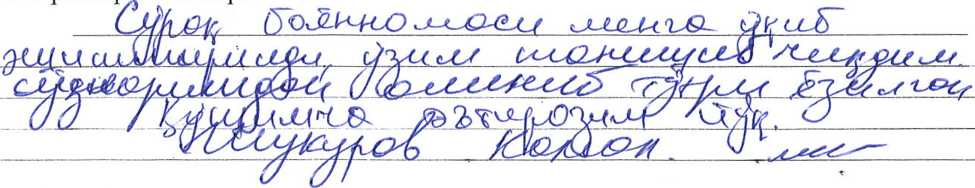 Сўроқ баённомаси менга ўқиб
эшиттирилди, ўзим танишиб чиқдим.
сўзларимдан олиниб тўғри ёзилган
Қўшимча эътирозим йўқ.
Шукуров